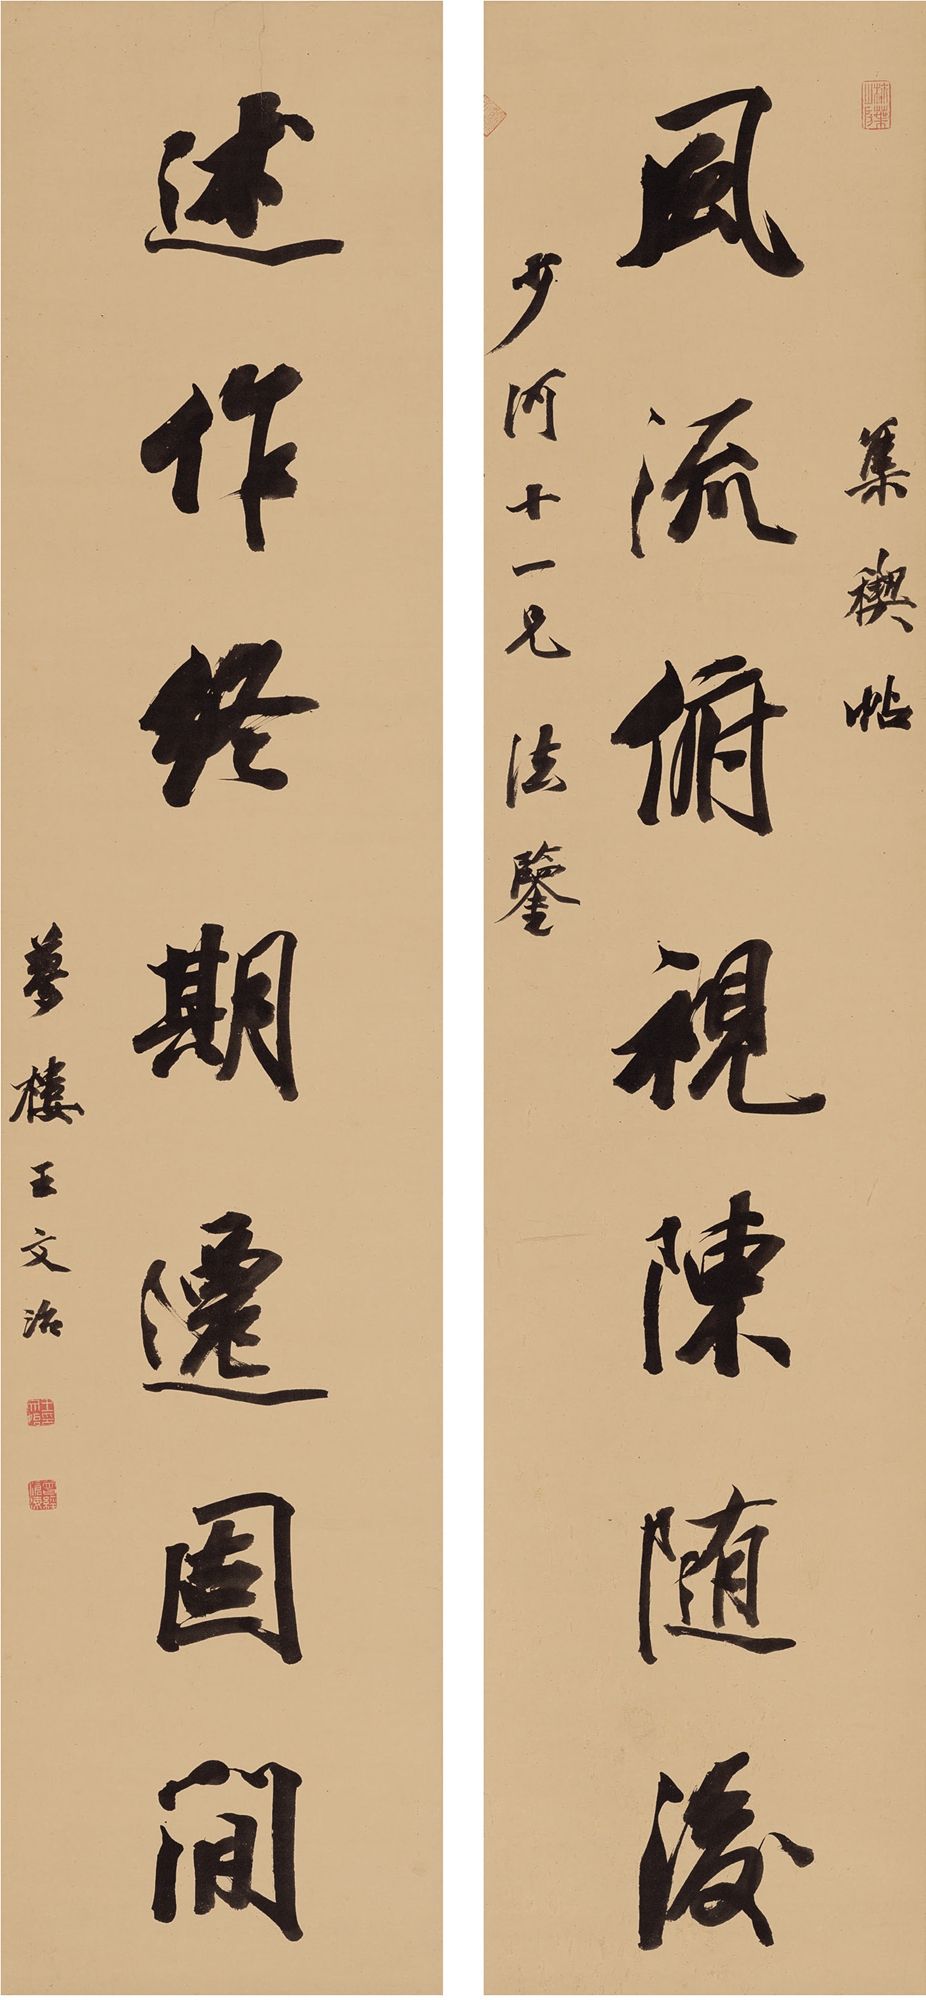 集稧帖
風流俯視陳随後
少河十一兄法鑒
述作終期遷固間
夢樓王文治